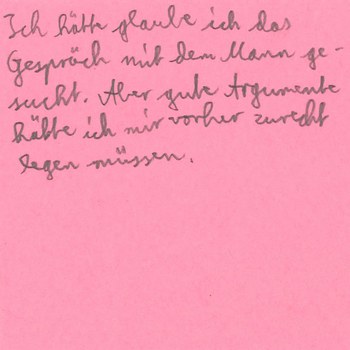 Ich hätte glaube ich das
Gespräch mit dem Mann ge-
sucht. Aber gute Argumente
hätte ich mir vorher zurecht
legen müssen.